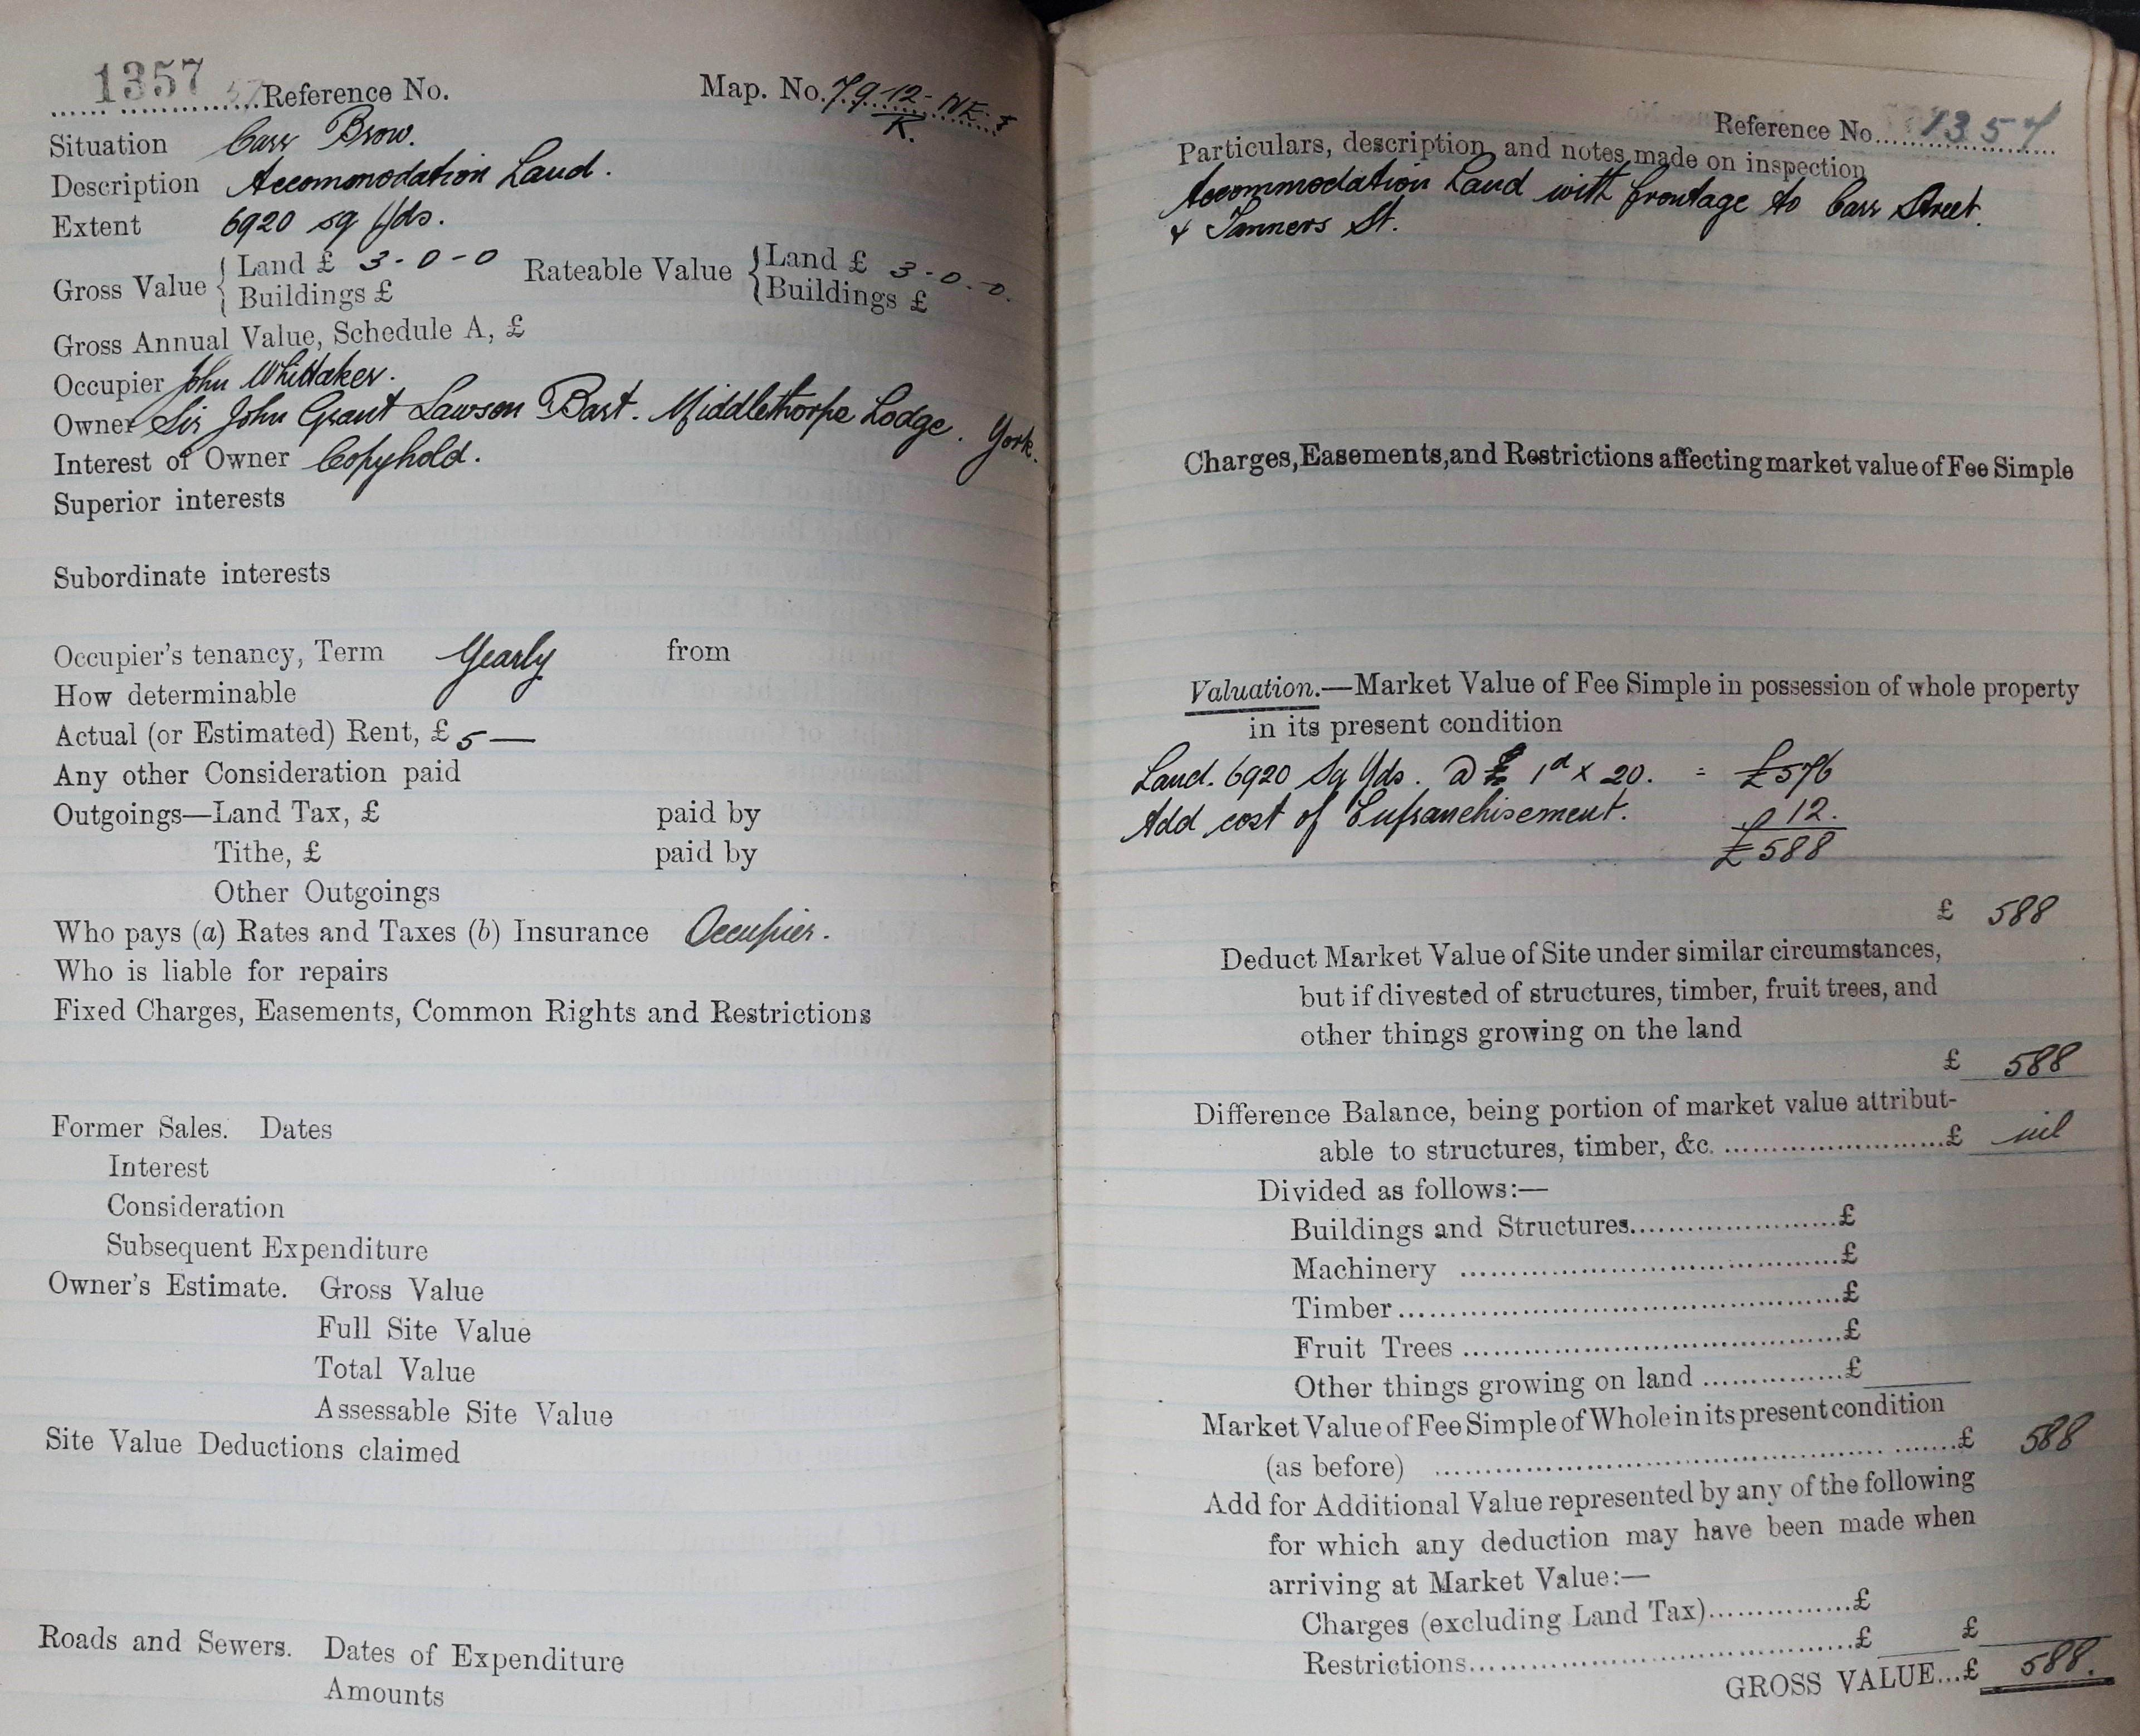 1357 Reference No. Map. No. 79-12-NE
R.
Situation Carr Brow.
Description Accomodation Land.
Extent 6920 sq Yds.
Gross Value { Land £ 3-0-0 Rateable Value { Land £ 3-0-0.
Buildings £ Buildings £
Gross Annual Value, Schedule A, £
Occupier John Whittaker.
Owner Sir John Grant Lawson Bart. Middlethorpe Lodge. York.
Interest of Owner Copyhold.
Superior interests
Subordinate interests
Occupier's tenancy, Term Yearly from
How determinable
Actual (or Estimated) Rent, £ 5 —
Any other Consideration paid
Outgoings—Land Tax, £ paid by
Tithe, £ paid by
Other Outgoings
Who pays (a) Rates and Taxes (b) Insurance Occupier.
Who is liable for repairs
Fixed Charges, Easements, Common Rights and Restrictions
Former Sales. Dates
Interest
Consideration
Subsequent Expenditure
Owner's Estimate. Gross Value
Full Site Value
Total Value
Assessable Site Value
Site Value Deductions claimed
Roads and Sewers. Dates of Expenditure
Amounts
Reference No. 1357
Particulars, description, and notes made on inspection
Accommodation Land with frontage to Carr Street.
& Tanners St.
Charges, Easements, and Restrictions affecting market value of Fee Simple
Valuation.—Market Value of Fee Simple in possession of whole property
in its present condition
Land. 6920 Sq Yds. @ 1d x 20. = £576
Add cost of Enfranchisement. 12.
£588
£ 588
Deduct Market Value of Site under similar circumstances,
but if divested of structures, timber, fruit trees, and
other things growing on the land
£ 588
Difference Balance, being portion of market value attribut-
able to structures, timber, &c. ........................£ nil
Divided as follows:—
Buildings and Structures........................£
Machinery ........................£
Timber........................£
Fruit Trees ........................£
Other things growing on land ................£
Market Value of Fee Simple of Whole in its present condition
(as before) ........................£ 588
Add for Additional Value represented by any of the following
for which any deduction may have been made when
arriving at Market Value:—
Charges (excluding Land Tax)................£
Restrictions........................£ £
GROSS VALUE...£ 588.